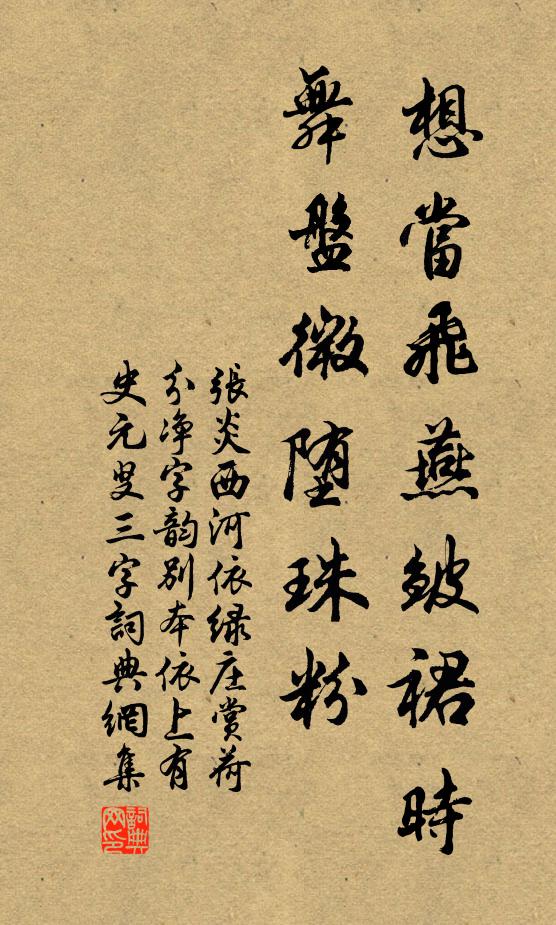 想當飛燕皺裙時
舞盤微堕珠粉
張炎西河依绿庄賞荷
分净字韵別本依上有
史元叟三字詞典網集
詞典网印